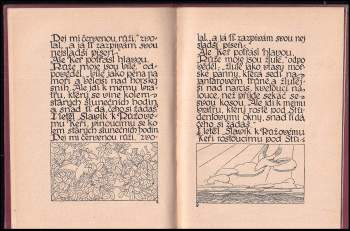 Dej mi červenou růži," zvo-
lal, „a já Ti zazpívám svou
nejsladší píseň."
Ale Keř potřásl hlavou.
„Růže moje jsou bílé," od-
pověděl, „bílé jako pěna na
moři a bělejší nad horský
sníh. Ale jdi k mému bra-
tru, který se vine kolem
starých slunečních hodin,
a snad ti dá, čeho si žádáš."
I letěl Slavík k Růžové-
mu Keři, pnoucímu se ko-
lem starých slunečních hodin.
„Dej mi červenou růži," zvo-
lal, „a já Ti zazpívám svou
nejsladší píseň."
Ale Keř potřásl hlavou.
„Růže moje jsou žluté," od-
pověděl, „žluté jako vlasy moř-
ské panny, která sedí na
jantarovém trůně, a žlutěj-
ší nad narcis, kvetoucí na
louce, než přijde sekáč se
svou kosou. Ale jdi k mému
bratru, který roste pod Stu-
dentovými okny, snad ti dá,
čeho si žádáš."
I letěl Slavík k Růžovému
Keři, rostoucímu pod Stu-